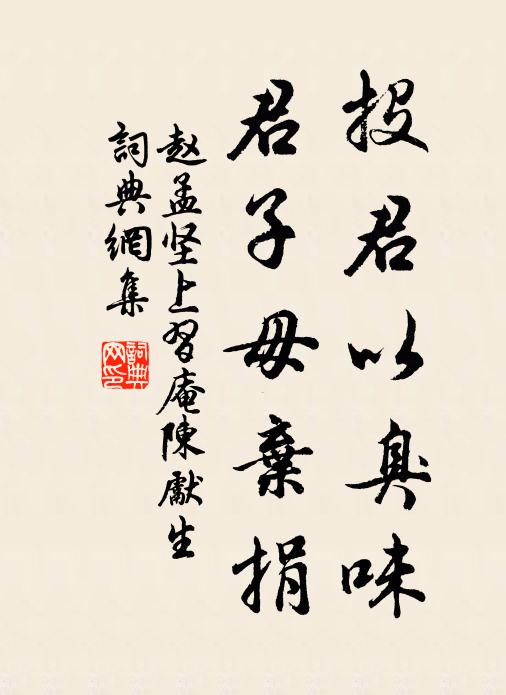 投君以臭味
君子毋棄捐
赵孟坚上習庵陳獻生
詞典網集
詞典網印